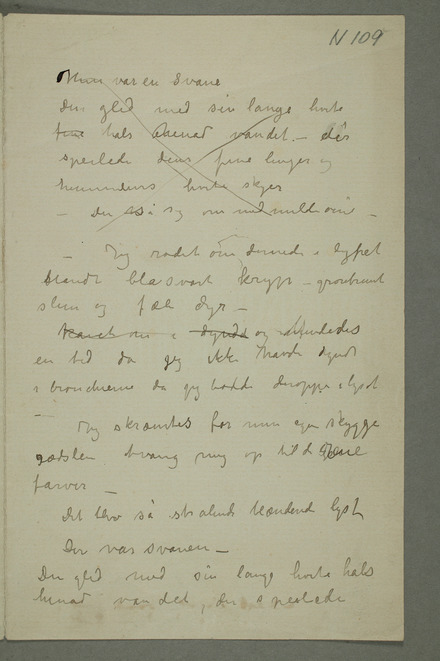 N 109
Hun var en Svane
Den gled med sin lange hvite
fine hals henad vandet – der
speilede dens fine linjer og
himmelens hvite skyer
– Den så sig om med milde öine –
– Jeg rodet om dernede i dybet
blandt blåsvart kryp – grønbrunt
slim og fæle dyr –
i dyndet og
en tid da jeg ikke havde dyndt
i bronchierne da jeg badde deroppe i lyset
–
Jeg skræmtes for min egen skygge
rædslen tvang mig op til de rene
farver –
Det blev så strålende blændende lyst
Der var svanen –
Den gled med sin lange hvite hals
henad vandet, der speilede